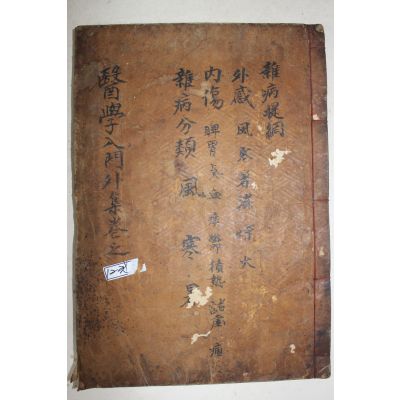 雜病提綱
外感 風寒暑濕燥火
内傷 脾胃 气 血 痰 鬱 積熱 諸虛
雜病分類 風 寒
醫學入門外集卷之